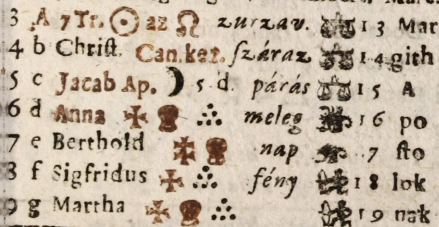 3 A 7 Tr. ☉ az ♌ zurzav. 13 Mar
4 b Christ. Can. kez. száraz 14 gith
5 c Jacab Ap. ☽ 5. d. párás 15 A
6 d Anna meleg 16 po
7 e Berthold nap 7 sto
8 f Sigfridus fény 18 lok
9 g Martha 19 nak